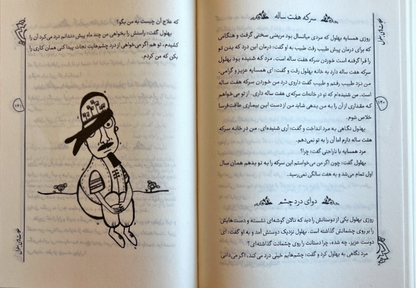 سرکه هفت ساله
روزی همسایه بهلول که مردی میانسال بود مریضی سختی گرفت و هنگامی
که برای درمان پیش طبیب رفت طبیب به او گفت: درمان این درد که بدن تو
را فرا گرفته است خوردن سرکه هفت ساله است. مرد که شنیده بود بهلول
سرکه هفت ساله دارد به خانه بهلول رفت و گفت: ای همسایه عزیز و گرامی،
من نزد طبیب رفتم و طبیب گفت دوای درد من خوردن سرکه هفت ساله
است. من شنیده‌ام که تو در خانه‌ات سرکه‌ی هفت ساله داری. از تو می‌خواهم
که مقداری از آن را به من بدهی شاید من از دست این بیماری طاقت‌فرسا
خلاص شوم.
بهلول نگاهی به مرد انداخت و گفت: آری شنیده‌ای. من در خانه سرکه
هفت ساله دارم اما آن را به تو نمی‌دهم.
مرد همسایه با ناراحتی گفت: چرا؟
بهلول گفت: چون اگر من می‌خواستم این سرکه را به تو بدهم همان سال
اول تمام می‌شد و به هفت سالگی نمی‌رسید.
دوای درد چشم
روزی بهلول یکی از دوستانش را دید که نالان گوشه‌ای نشسته و دست‌هایش
را بر روی چشمانش گذاشته است. بهلول نزدیک دوستش آمد و به او گفت: ای
دوست عزیز، چه شده، چرا دستانت را روی چشمانت گذاشته‌ای؟
مرد نگاهی به بهلول کرد و گفت: چشم‌هایم خیلی درد می‌کند، اگر می‌دانی
که علاج آن چیست به من بگو؟
بهلول گفت: راستش را بخواهی من چند ماه پیش دندانم درد می‌کرد آن را
کشیدم، تو هم اگر می‌خواهی از درد چشم‌هایت نجات پیدا کنی همان کاری را
بکن که من کردم.